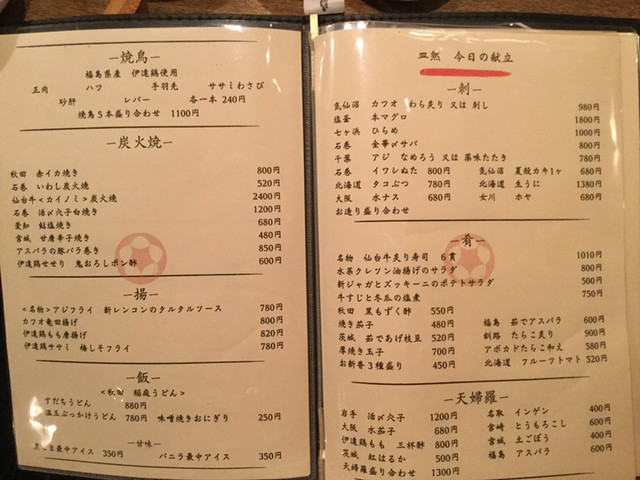 ―焼鳥―
福島県産 伊達鶏使用
正肉 ハツ 手羽先 ササミわさび
砂肝 レバー 各一本 240円
焼鳥5本盛り合わせ 1100円
―炭火焼―
秋田 赤イカ焼き 800円
石巻 いわし炭火焼 520円
仙台牛<カイノミ>炭火焼 2400円
石巻 活〆穴子白焼き 1200円
愛知 鮎塩焼き 680円
宮城 甘唐辛子焼き 480円
アスパラの豚バラ巻き 850円
伊達鶏せせり 鬼おろしポン酢 600円
―揚―
<名物>アジフライ 新レンコンのタルタルソース 780円
カツオ竜田揚げ 800円
伊達鶏もも唐揚げ 820円
伊達鶏ササミ 梅しそフライ 780円
―飯―
<秋田 稲庭うどん>
すだちうどん 880円
温玉ぶっかけうどん 780円 味噌焼きおにぎり 250円
―甘味―
最中アイス 350円 バニラ最中アイス 350円
皿然 今日の献立
―刺―
気仙沼 カツオ わら炙り 又は 刺し 980円
塩釜 本マグロ 1800円
七ヶ浜 ひらめ 1000円
石巻 金華〆サバ 800円
千葉 アジ なめろう 又は 薬味たたき 780円
石巻 イワシぬた 800円 気仙沼 夏殻カキ1ヶ 680円
北海道 タコぶつ 780円 北海道 生うに 1380円
大阪 水ナス 680円 女川 ホヤ 680円
お造り盛り合わせ
―肴―
名物 仙台牛炙り寿司 6貫 1010円
水菜クレソン油揚げのサラダ 800円
新ジャガとズッキーニのポテトサラダ 500円
牛すじと冬瓜の塩煮 750円
秋田 黒もずく酢 550円
焼き茄子 480円 福島 茹でアスパラ 600円
茨城 茹であげ枝豆 520円 釧路 たらこ炙り 900円
厚焼き玉子 700円 アボカドたらこ和え 580円
お新香3種盛り 450円 北海道 フルーツトマト 520円
―天婦羅―
岩手 活〆穴子 1200円 名取 インゲン 400円
大阪 水茄子 680円 宮崎 とうもろこし 600円
伊達鶏もも 三杯酢 800円 宮城 土ごぼう 400円
茨城 紅はるか 500円 福島 アスパラ 600円
天婦羅盛り合わせ 1300円